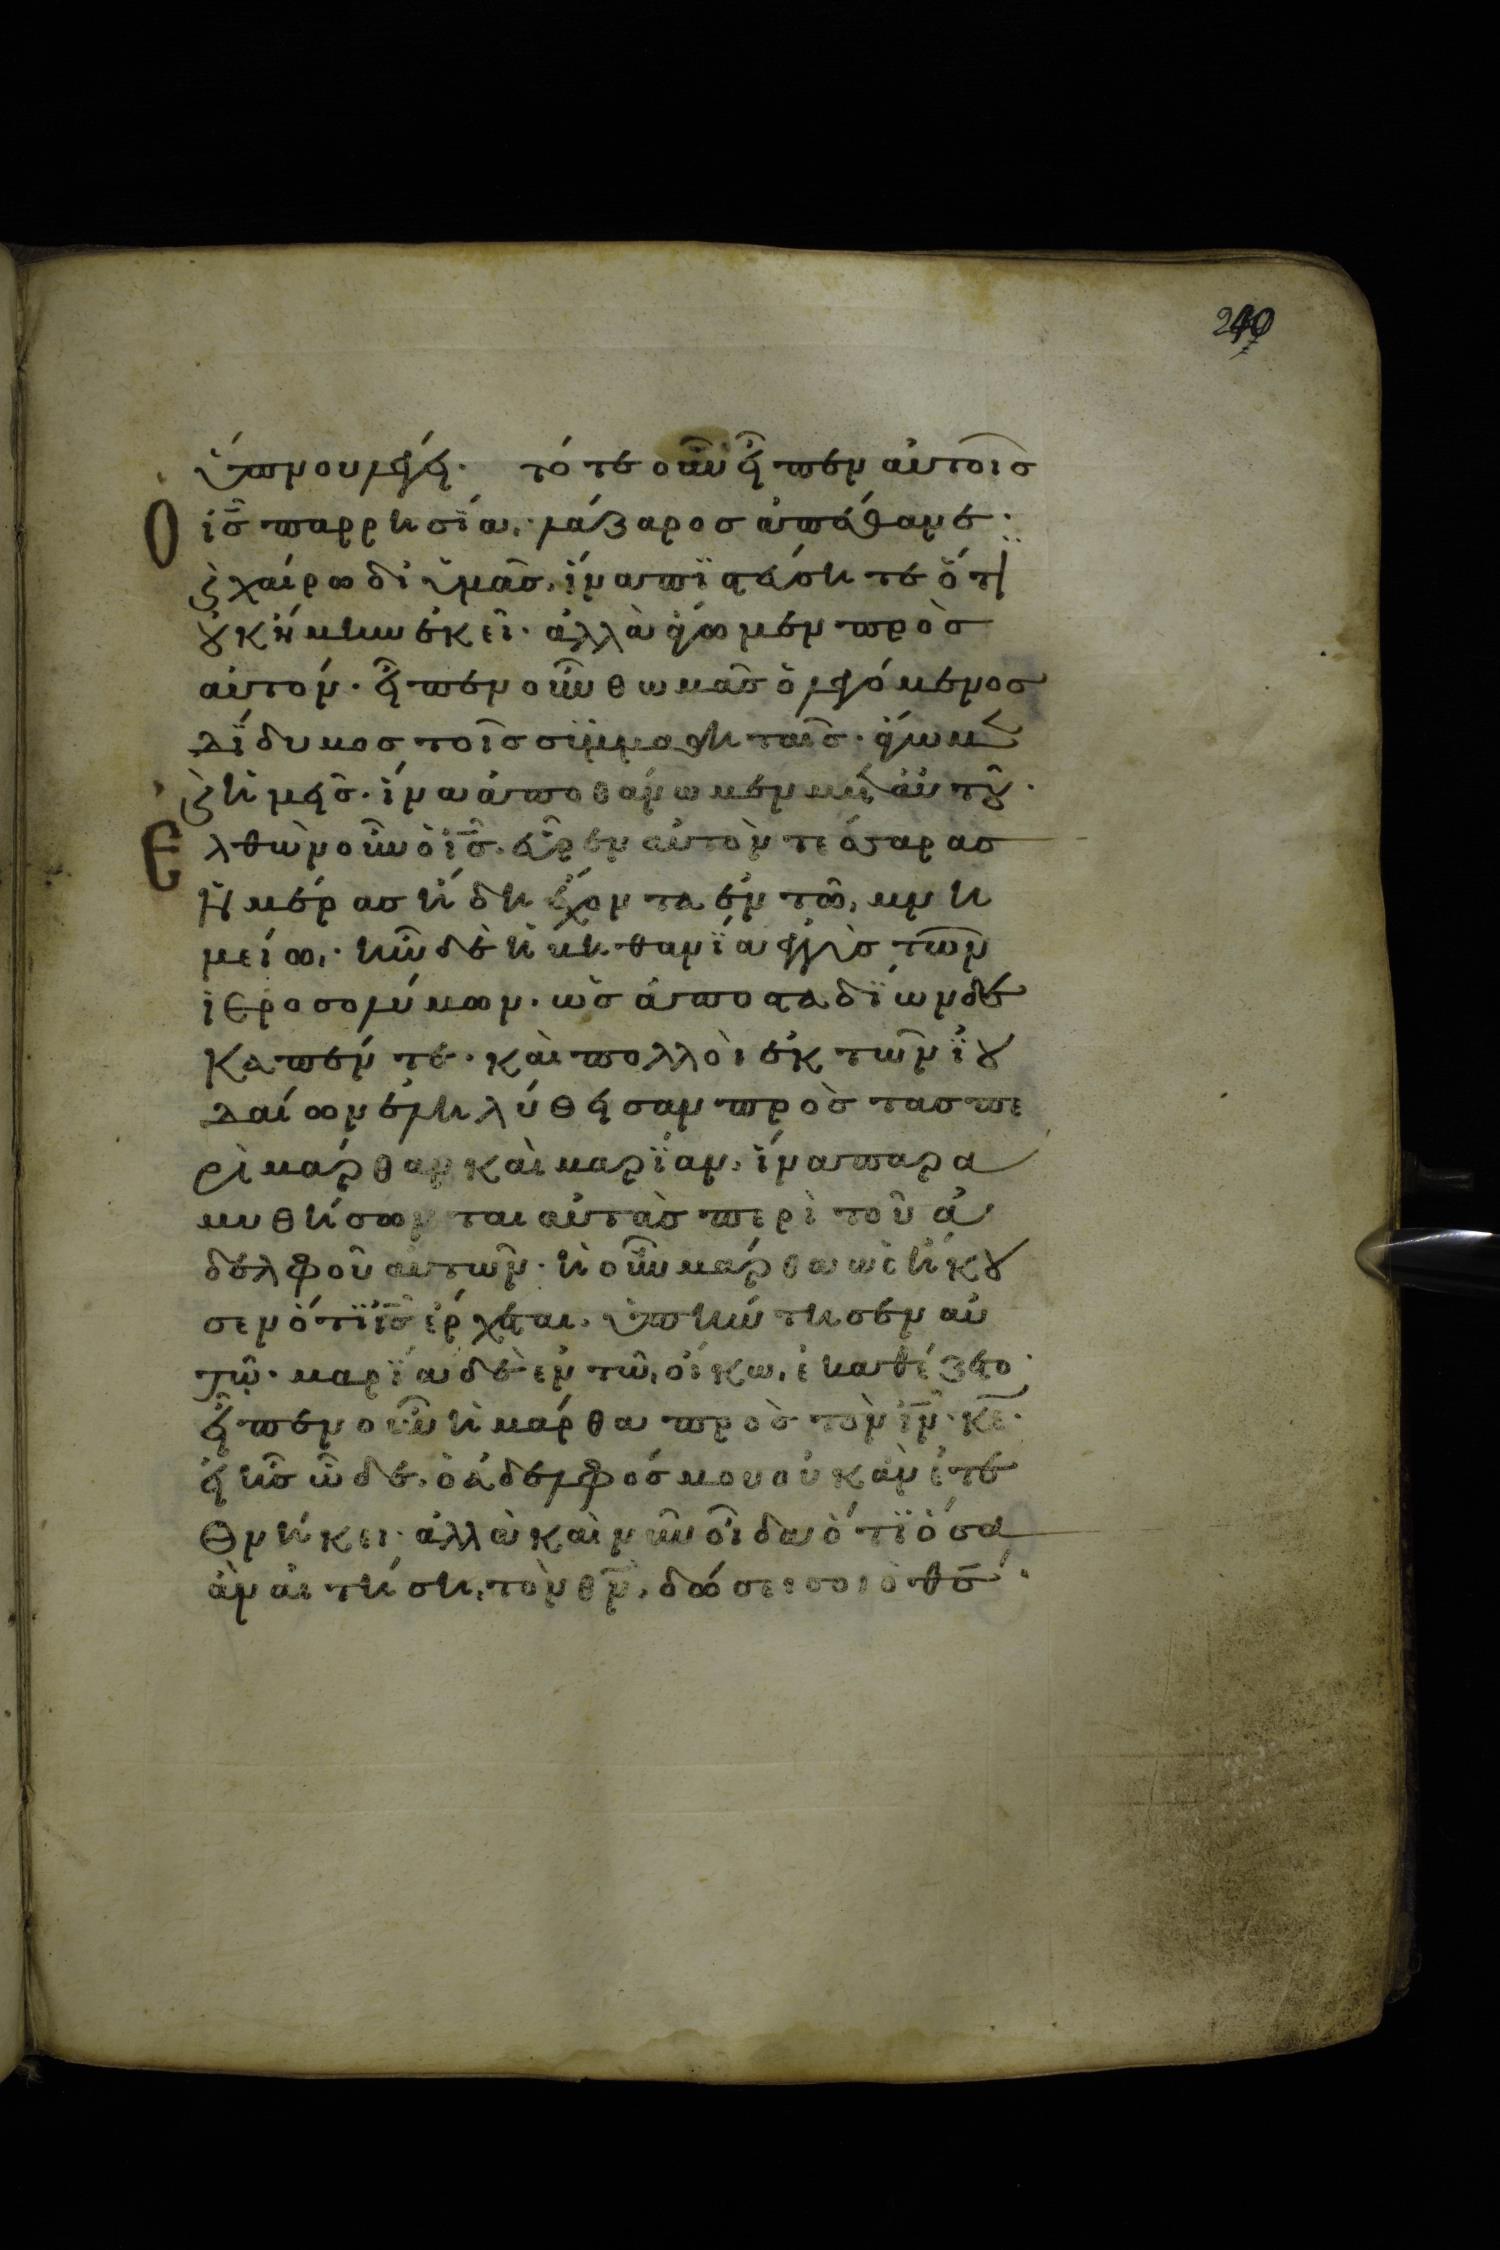 240
ὕπνου λέγει. τότε οὖν εἶπεν αὐτοῖσ
Ὁ ισ παρρησίαι. λάζαροσ ἀπέθανε.
ϗ χαίρω δι ὑμᾶσ, ἵνα πϊστεύσητε ὅτϊ
οὐκ ἤμην ἐκεῖ. ἀλλὰ ἄγωμεν πρὸσ
αὐτόν. εἶπεν οὖν θωμᾶσ ὁ λεγόμενοσ
δΐδυμοσ τοῖσ συμμαθηταῖσ. ἄγωμεν
ϗ ἡμεῖσ. ἵνα ἀποθάνωμεν μετ αὐτοῦ.
Ἐλθὼν οὖν ὁ ισ. εὗρεν αὐτὸν τέσσαρασ
ἡμέρασ ἤδη ἔχοντα ἐν τῶι μνη
μείωι. ἦν δὲ ἡ βηθανΐα ἐγγὺσ τῶν
ἱεροσολύμων. ὡσ ἀπο σταδΐων δέ
καπέντε. καὶ πολλοὶ ἐκ τῶν ϊου
δαίων ἐληλύθεισαν πρὸσ τασ πε
ρὶ μάρθαν καὶ μαρΐαν. ἵνα παρα
μυθήσωνται αὐτὰσ περὶ τοῦ ἀ
δελφοῦ αὐτῶν. ἡ οὖν μάρθα ὡσ ἤκου
σεν ὅτϊ ισ ἔρχεται. ὑπήντησεν αὐ
τῶ. μαρΐα δὲ ἐν τῶι οἴκωι ἐκαθέζετο.
εἶπεν οὖν ἡ μάρθα πρὸσ τὸν ιν. κε.
εἰ ἦσ ὧδε. ὁ ἀδελφόσ μου οὐκ ἂν ἐτε
θνήκει. ἀλλὰ καὶ νῦν οἶδα ὅτϊ ὅσα
ἂν αἰτήσηι τὸν θν, δώσει σοι ὁ θσ.